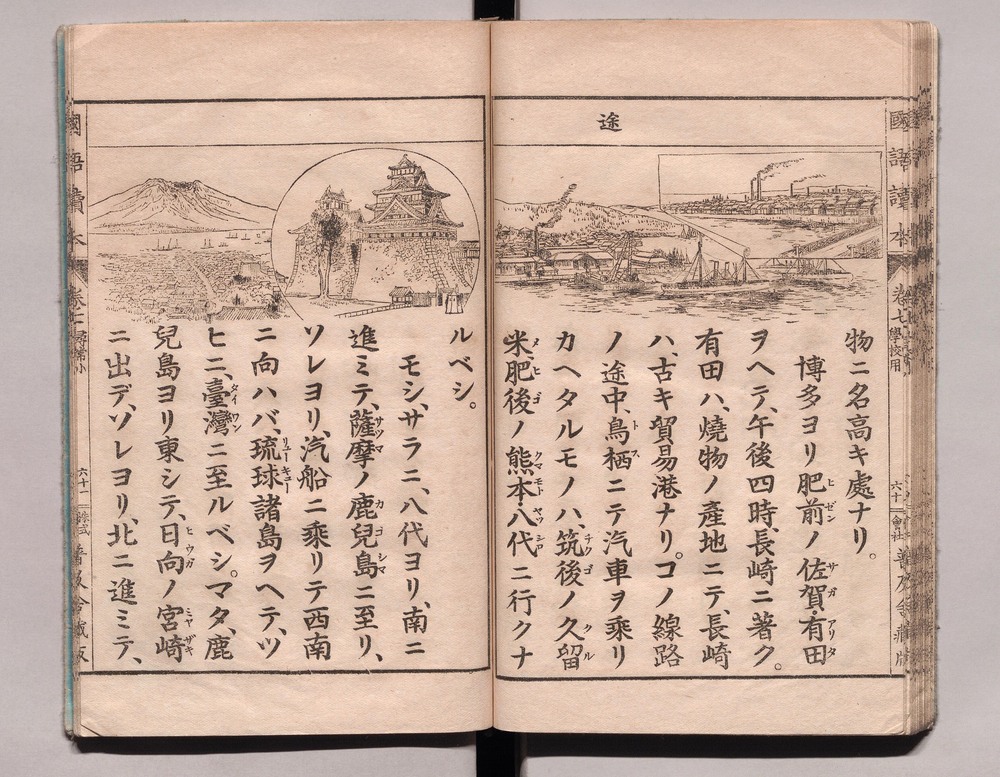 途
物ニ名高キ處ナリ。
博多ヨリ肥前ノ佐賀・有田
ヲヘテ、午後四時、長崎ニ著ク。
有田ハ、燒物ノ產地ニテ、長崎
ハ、古キ貿易港ナリ。コノ線路
ノ途中、鳥栖ニテ汽車ヲ乘リ
カヘタルモノハ、筑後ノ久留
米、肥後ノ熊本・八代ニ行クナ
ルベシ。
モシ、サラニ、八代ヨリ、南ニ
進ミテ、薩摩ノ鹿兒島ニ至リ、
ソレヨリ、汽船ニ乘リテ西南
ニ向ハバ、琉球諸島ヲヘテ、ツ
ヒニ、臺灣ニ至ルベシ。マタ、鹿
兒島ヨリ東シテ、日向ノ宮崎
ニ出デ、ソレヨリ、北ニ進ミテ、
國語讀本
卷七
六十一